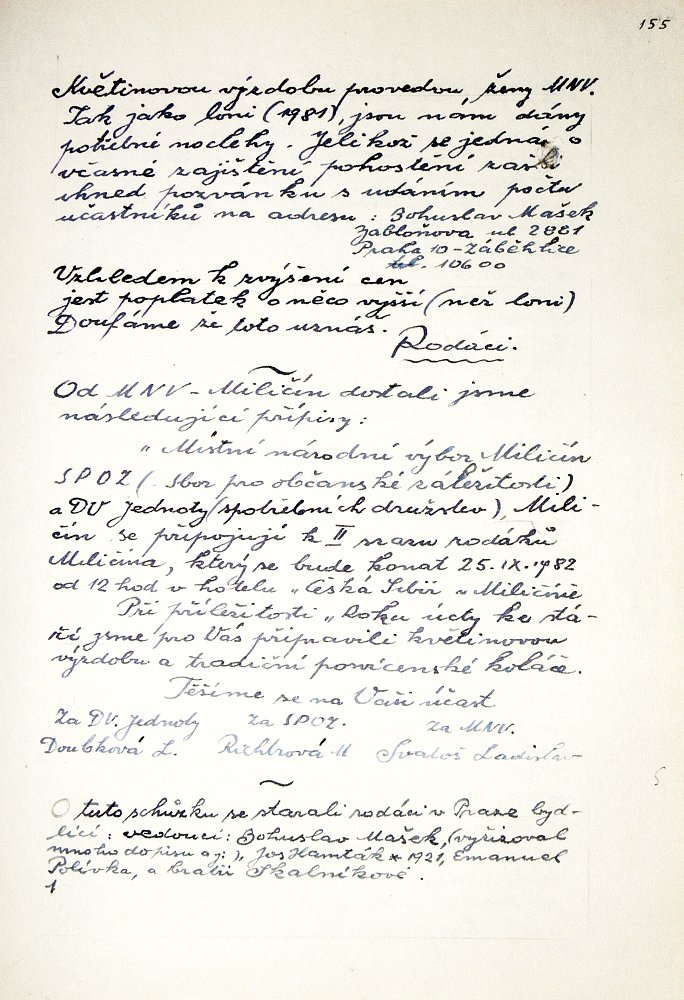 155
Květinovou výzdobu provedou, ženy MNV.
Tak jako loni (1981), jsou nám dány
potřebné noclehy. Jelikož se jedná o
včasné zajištění pohoštění zašli
ihned pozvánku s udáním počtu
účastníků na adresu: Bohuslav Mašek
Jabloňova ul 2881
Praha 10-Záběhlice
10600
Vzhledem k zvýšení cen
jest poplatek o něco vyšší (než loni)
Doufáme že toto uznáš.
Rodáci.
Od MNV-Miličín dostali jsme
následující přípisy:
"Místní národní výbor Miličín
SPOZ (Sbor pro občanské záležitosti)
a DV Jednoty (spotřebních družstev), Mili-
čín se připojují k II srazu rodáků
Miličína, který se bude konat 25.IX.1982
od 12 hod v hotelu "Česká Sibiř v Miličíně
Při příležitosti "Roku úcty ke stá-
ří jsme pro Vás připravili květinovou
výzdobu a tradiční posvícenské koláče.
Těšíme se na Vaši účast
Za DV. Jednoty Za SPOZ. Za MNV.
Doubková L. Richtrová M Svatoš Ladislav
O tuto schůzku se starali rodáci v Praze byd-
lící: vedoucí: Bohuslav Mašek, (vyřizoval
mnoho dopisu a j:), Jos Hamták * 1921, Emanuel
Polívka, a bratři Skalníkové.